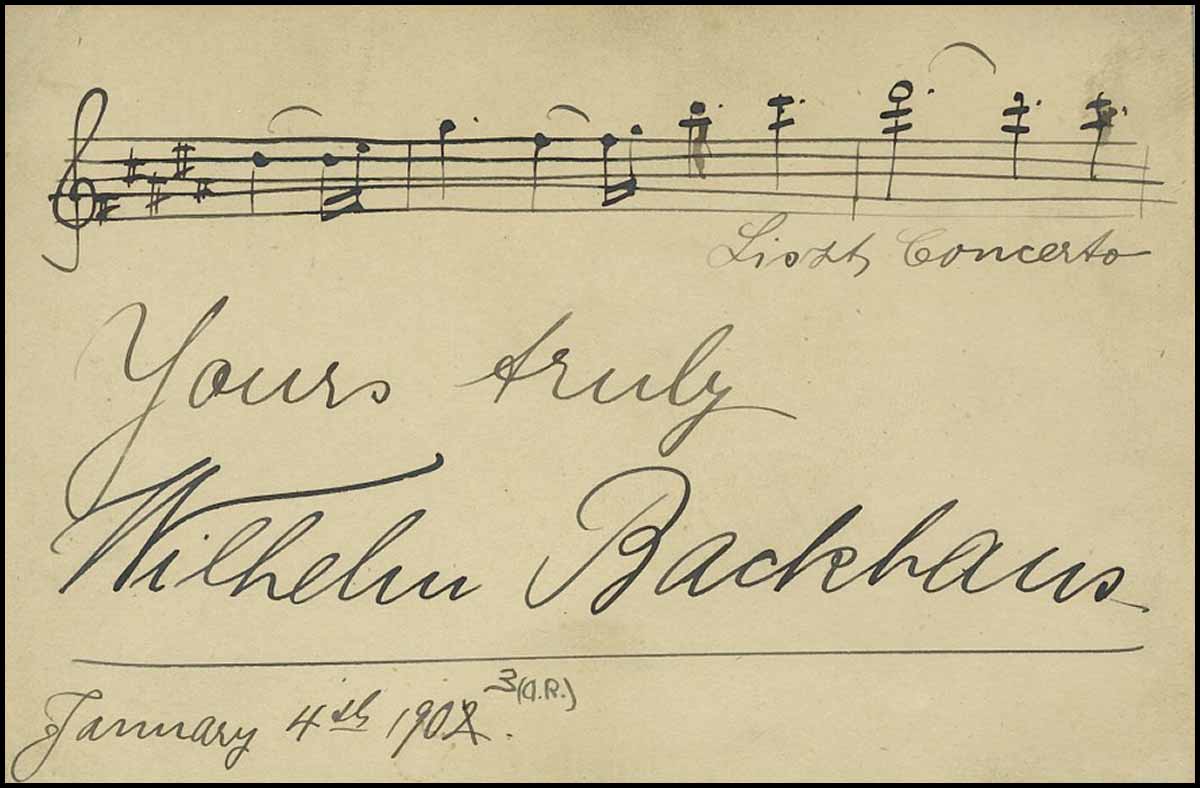 Liszt, Concerto
Yours truly
Wilhelm Backhaus
3(A.R.)
January 4th 1902.